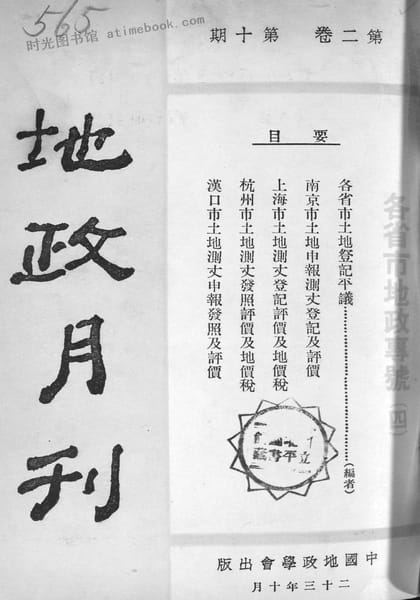 565
时光图书馆 atimebook.com
第二卷 第十期
地政月刊
各省市地政專號(四)
要目
各省市土地登記平議……(編者)
南京市土地申報測丈登記及評價
上海市土地測丈登記評價及地價稅
杭州市土地測丈發照評價及地價稅
漢口市土地測丈申報發照及評價
中國地政學會出版
二十三年十月